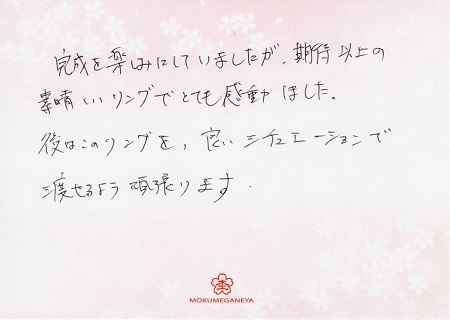 完成を楽しみにしていましたが、期待以上の
素晴しいリングでとても感動しました。
後はこのリングを、良いシチュエーションで
渡せるよう頑張ります.
MOKUMEGANEYA